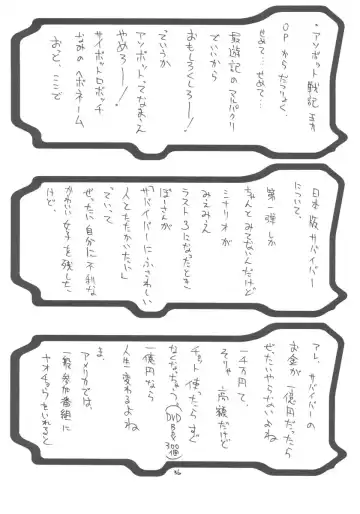 ・アソボット戦記 まず
OPからだつりょく。
せめて…せめて…
最遊記のマルパクリ
でいいから
おもしろくしろー!
ていうか
アソボットってなまえ
やめろー!!
サイボットロボッチ
なみのへボネーム
おっと、ここで
日本版サバイバー
について。
第一弾しか
ちゃんとみてないんだけど
シナリオが
みえみえ
ラスト3になったとき
ぼーさんが
「サバイバーにふさわしい
人とたたかいたい」
っていって
ぜったいに自分に不利な
かわいい女子を残した、
けど、
アレ、サバイバーの
お金が一億円だったら
ぜったいやらないよね
一千万円て、
そりゃ高額だけど
チョット使ったらすぐ
なくなっちゃう。(DVDBOX300個)
一億円なら
人生変わるよね
ま、
アメリカでは、
一般参加番組に
ヤオチョウをいれると
36